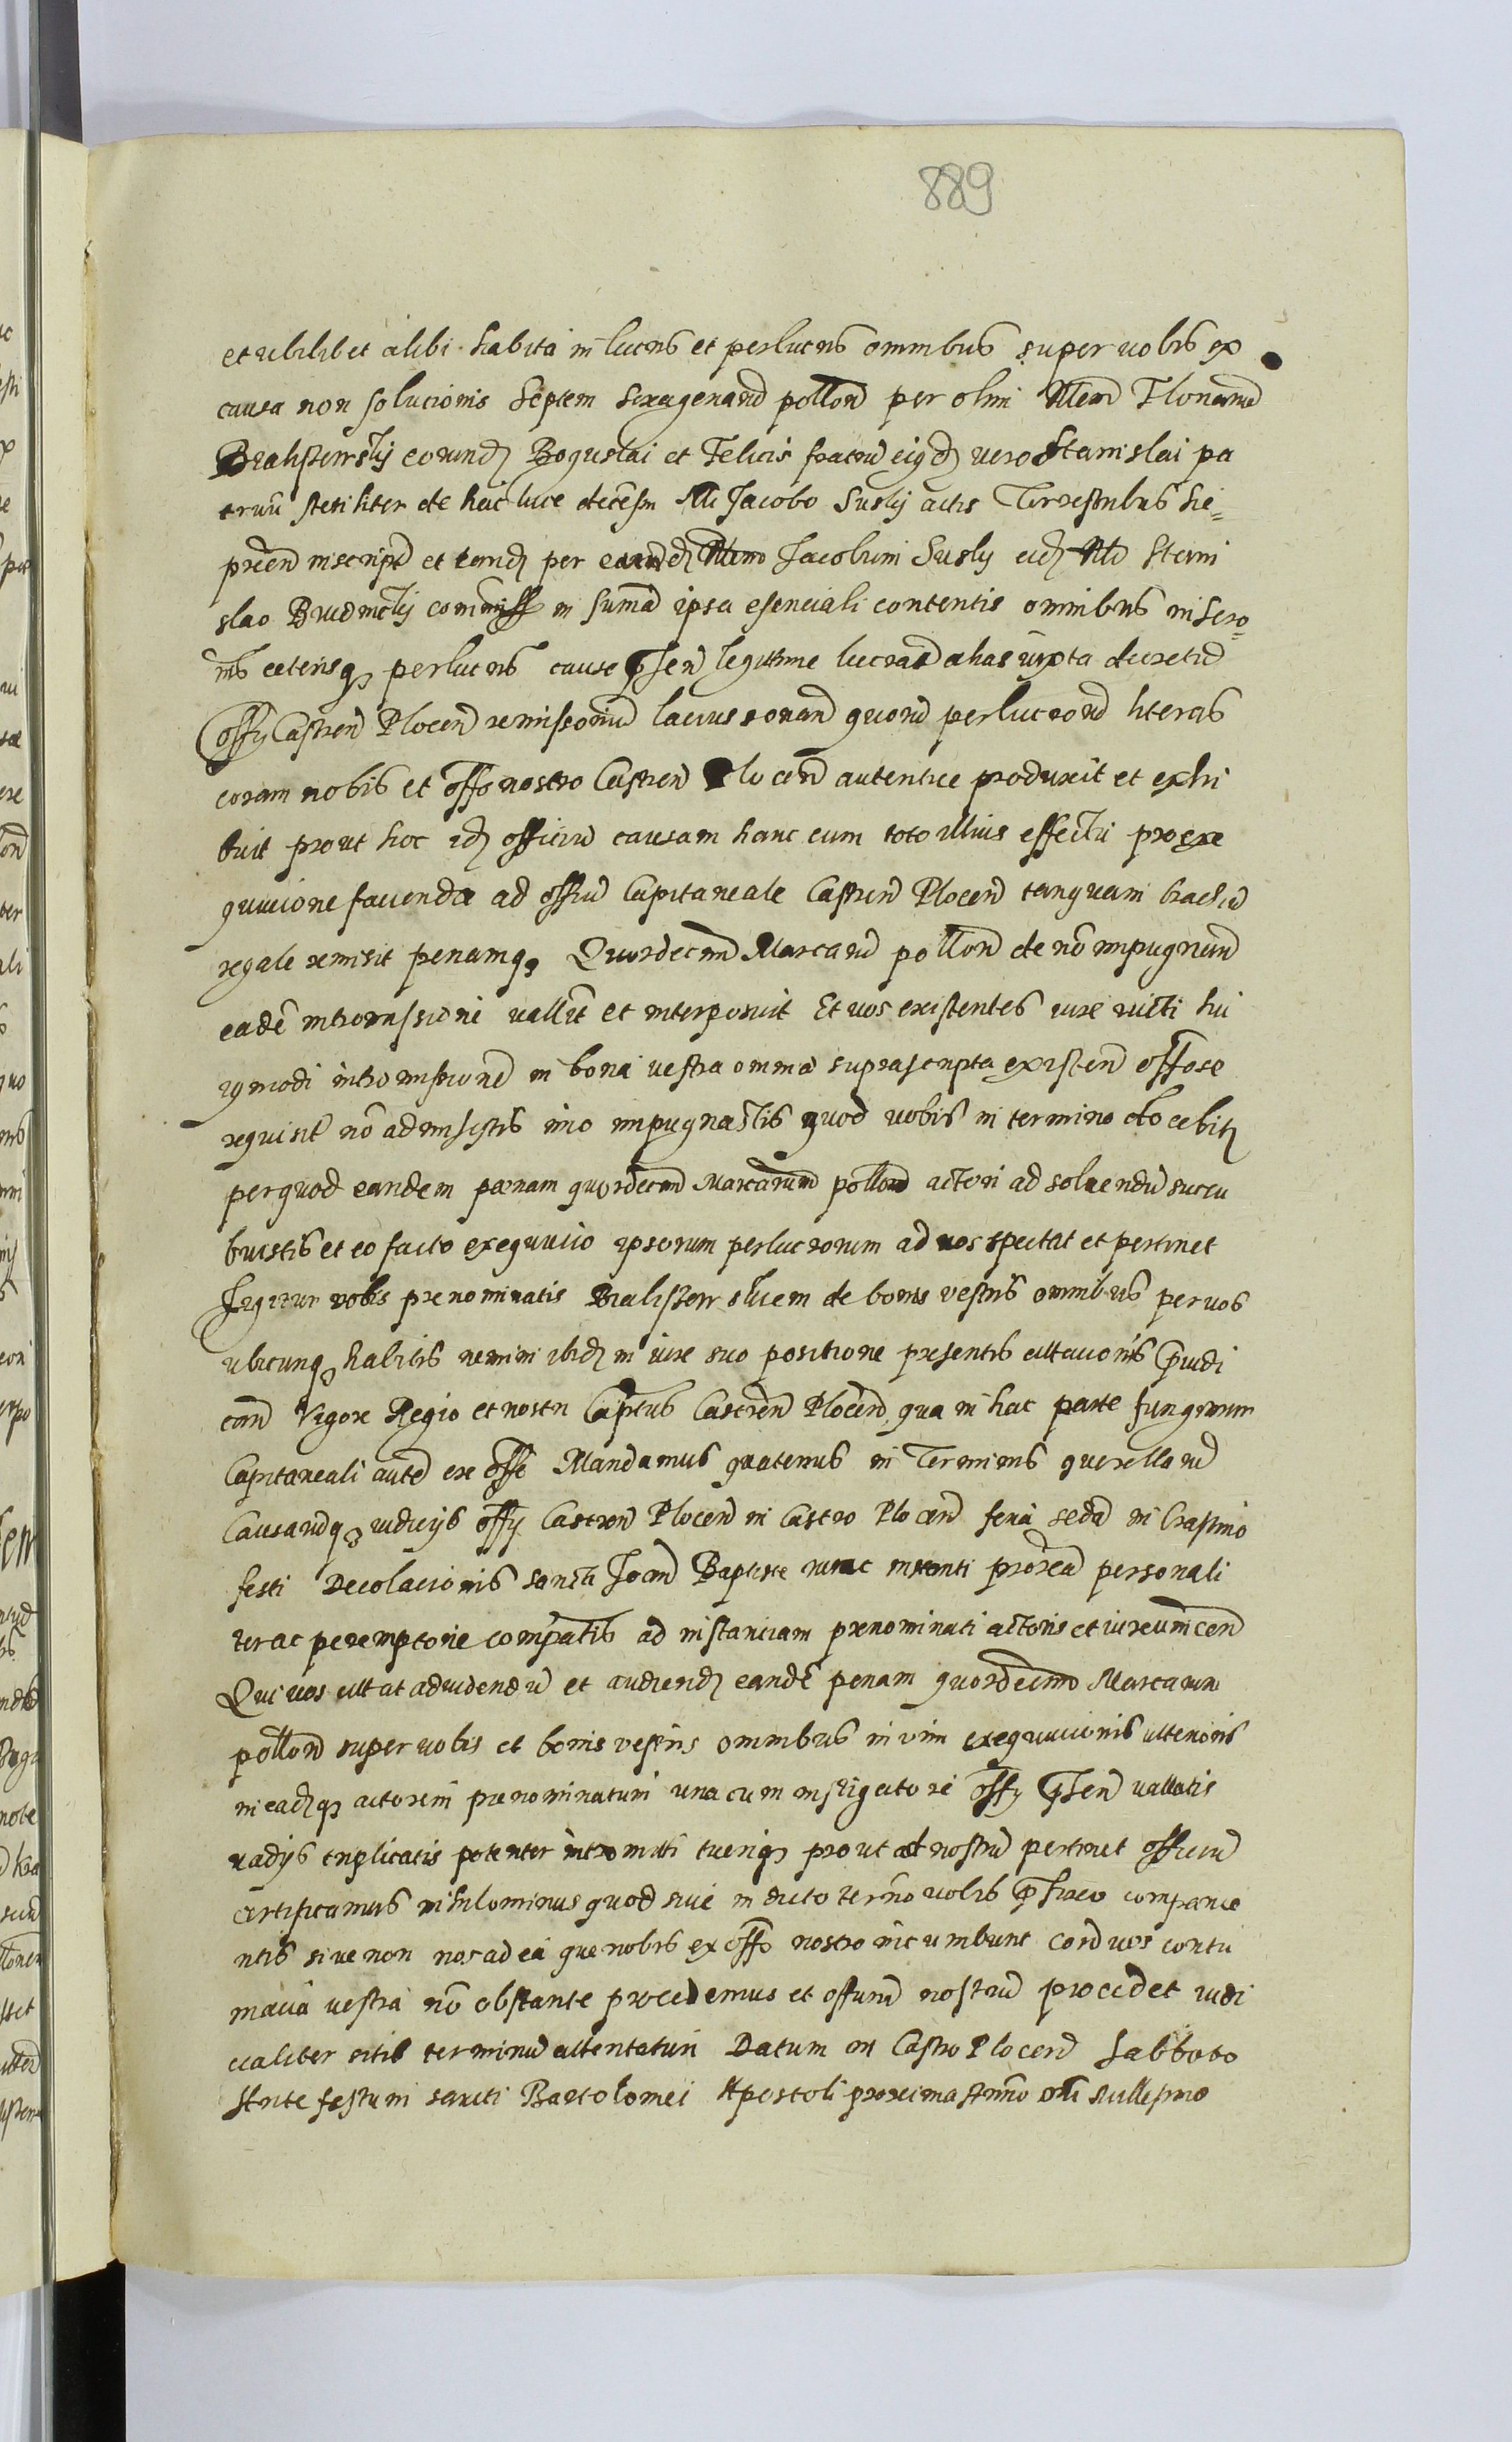 889
et ubilibet alibi habita in lucris et perlucris omnibus super vobis ex
causa non solucionis Septem sexagenarū pollon per olim Florianū
Bialiskurskij eorundē Boguslai et Felicis fratrū eiusdē vero Stanislai pa
truū steriliter de hac luce Jacobo Suskij actis Terrestribus Sie=
pren inscript et tandē per Jacobum Suskij Stani
slao in sumā ipsa esenciali contentis omnibus in
ceterisqȝ perlucris cause legittime lucrat alias iuxta decretū
offȳ Castren Plocen remissoriū lacius sonan quorū perlucrorū literas
coram nobis et offo nostro Castren Plocen autentice produxit et exhi
buit prout hoc idē officiū causam hanc cum toto illius effectu pro exe
quucione facienda ad offiū Capitaneale Castren Plocen tanquam brachiū
regale remisit penamqȝ Quordecim Marcarū pollon de nō impugnan
eadē intromissione vallavit et interposuit Et vos existentes iure victi hui
usmodi intromissionē in bona vestra omnia suprascripta existen offose
requisit nō admisistis imo impugnastis quod vobis in termino docebitȝ
per quod eandem poenam quordecim Marcarum pollon actori ad solvendū succu
buistis et eo facto exequucio ipsorum perlucrorum ad vos spectat et pertinet
Igitur vobis prenominatis de bonis vestris omnibus per vos
ubicunqȝ habitis nemini ibidē in iure suo positione presentis citacionis prȩiudi
can Vigore Regio et nostri Captus Castren Plocen qua in hac parte fungimur
Capitaneali auten ex offo Mandamus quatenus in Terminis querellarū
Causarūqȝ iudicijs offȳ Castren Plocen in Castro Plocen feria seda in Crastino
festi Decolacionis sancti Joan Baptiste nunc instanti personali
ter ac peremptorie compatis ad instanciam prenominati actoris et
Qui vos citat ad videndū et audiendȝ eandē penam quordecim Marcarum
pollon super vobis et bonis vestris omnibus in vim exequucionis ulterioris
in eadȝqȝ actorem prenominatum una cum instigatore offȳ vallatis
vadijs triplicatis potenter intromitti tueriqȝ prout ad nostrū pertinet officiū
certificamus nihilominus quod sive in dicto termo vobis compare
ntis sive non nos ad ea que nobis ex offo nostro incumbunt vos contu
macia vestra nō obstante procedemus et offiuū nostrū procedet iudi
cialiter sitis terminū attentaturi Datum in Castro Plocen Sabbato
Ante festum sancti Bartolomei Apostoli proximo